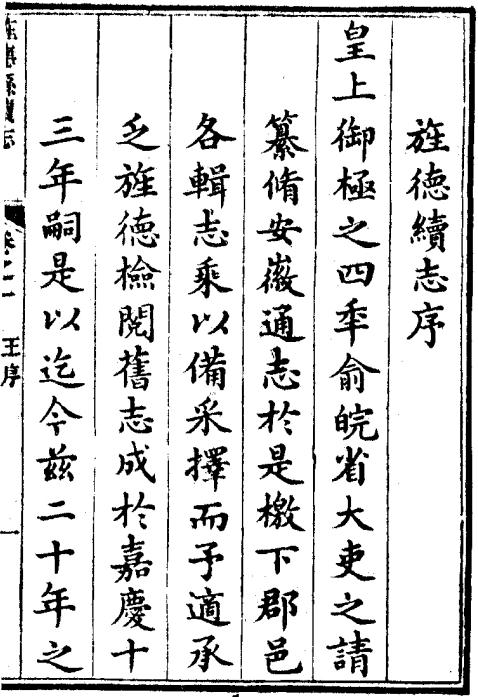 旌德續志序
皇上御極之四秊俞皖省大吏之請
纂脩安徽通志於是檄下郡邑
各輯志乘以備采擇而予適承
乏旌德檢閱舊志成於嘉慶十
三年嗣是以迄今茲二十年之
王序
一